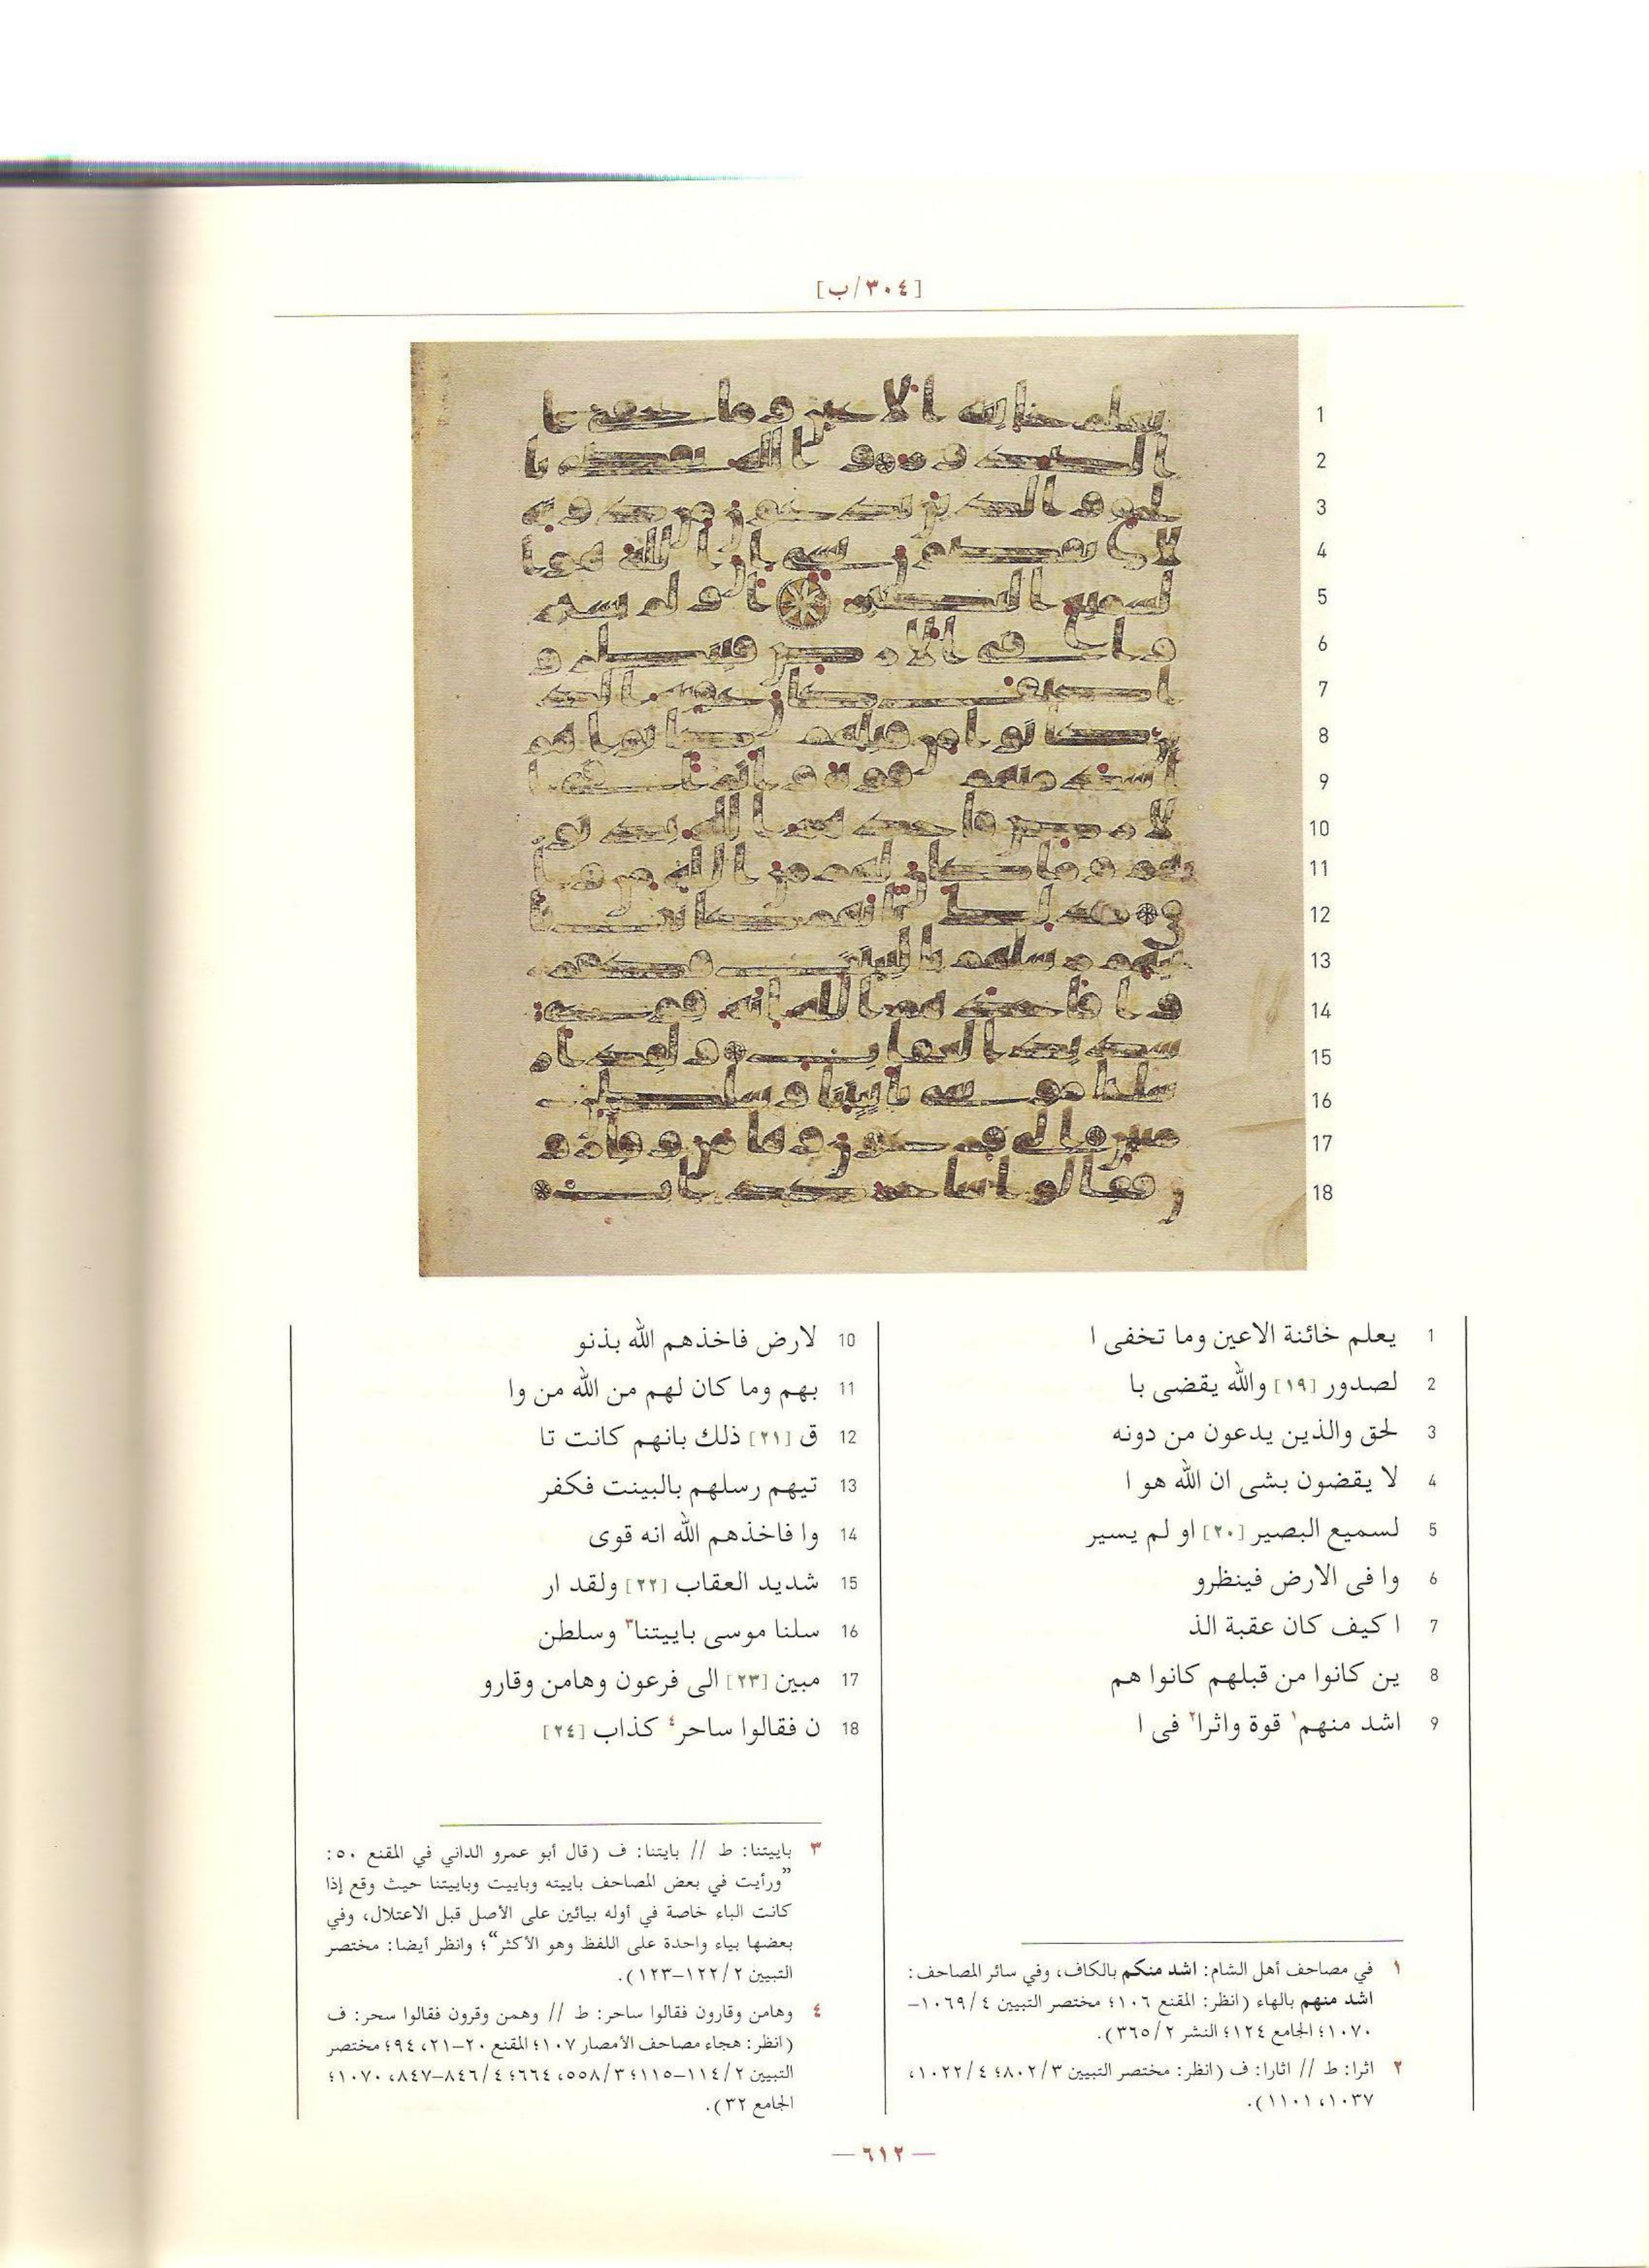 [٣٠٤/ب]
1
2
3
4
5
6
7
8
9
10
11
12
13
14
15
16
17
18
1 يعلم خائنة الاعين وما تخفى ا
2 لصدور [١٩] والله يقضى با
3 لحق والذين يدعون من دونه
4 لا يقضون بشى ان الله هو ا
5 لسميع البصير [٢٠] او لم يسير
6 وا فى الارض فينظرو
7 ا كيف كان عقبة الذ
8 ين كانوا من قبلهم كانوا هم
9 اشد منهم١ قوة واثرا٢ فى ا
10 لارض فاخذهم الله بذنو
11 بهم وما كان لهم من الله من وا
12 ق [٢١] ذلك بانهم كانت تا
13 تيهم رسلهم بالبينت فكفر
14 وا فاخذهم الله انه قوى
15 شديد العقاب [٢٢] ولقد ار
16 سلنا موسى باييتنا٣ وسلطن
17 مبين [٢٣] الى فرعون وهامن وقارو
18 ن فقالوا ساحر٤ كذاب [٢٤]
١ في مصاحف أهل الشام: اشد منكم بالكاف، وفي سائر المصاحف:
اشد منهم بالهاء (انظر: المقنع ١٠٦؛ مختصر التبيين ١٠٦٩/٤–
١٠٧٠؛ الجامع ١٢٤؛ النشر ٣٦٥/٢).
٢ اثرا: ط // اثارا: ف (انظر: مختصر التبيين ٨٠٢/٣؛ ١٠٢٢/٤،
١٠٣٧، ١١٠١).
٣ باييتنا: ط // بايتنا: ف (قال أبو عمرو الداني في المقنع ٥٠:
”ورأيت في بعض المصاحف باييته وباييت وباييتنا حيث وقع إذا
كانت الباء خاصة في أوله بيائين على الأصل قبل الاعتلال، وفي
بعضها بياء واحدة على اللفظ وهو الأكثر“؛ وانظر أيضا: مختصر
التبيين ١٢٢/٢–١٢٣).
٤ وهامن وقارون فقالوا ساحر: ط // وهمن وقرون فقالوا سحر: ف
(انظر: هجاء مصاحف الأمصار ١٠٧؛ المقنع ٢٠–٢١، ٩٤؛ مختصر
التبيين ١١٤/٢–١١٥؛ ٥٥٨/٣، ٦٦٤؛ ٨٤٦/٤–٨٤٧، ١٠٧٠؛
الجامع ٣٢).
— ٦١٢ —